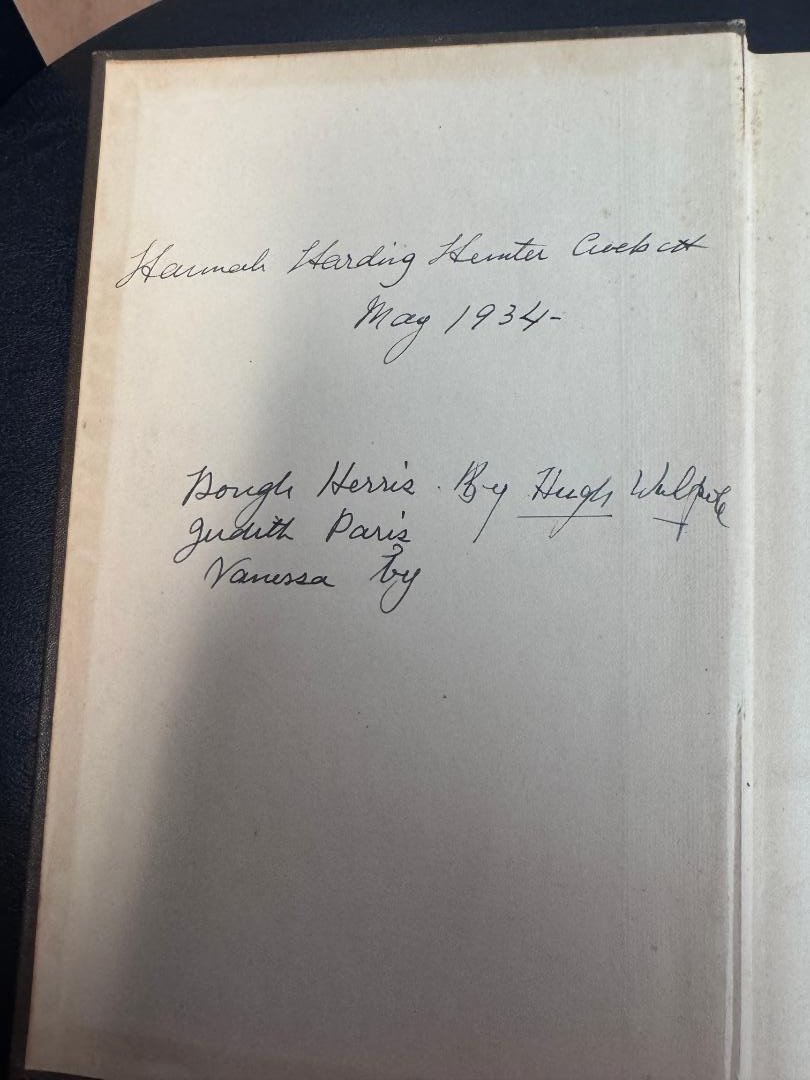 Hannah Harding Hunter
May 1934-
Herris. By Hugh Walpole
Judith Paris
Vanessa by